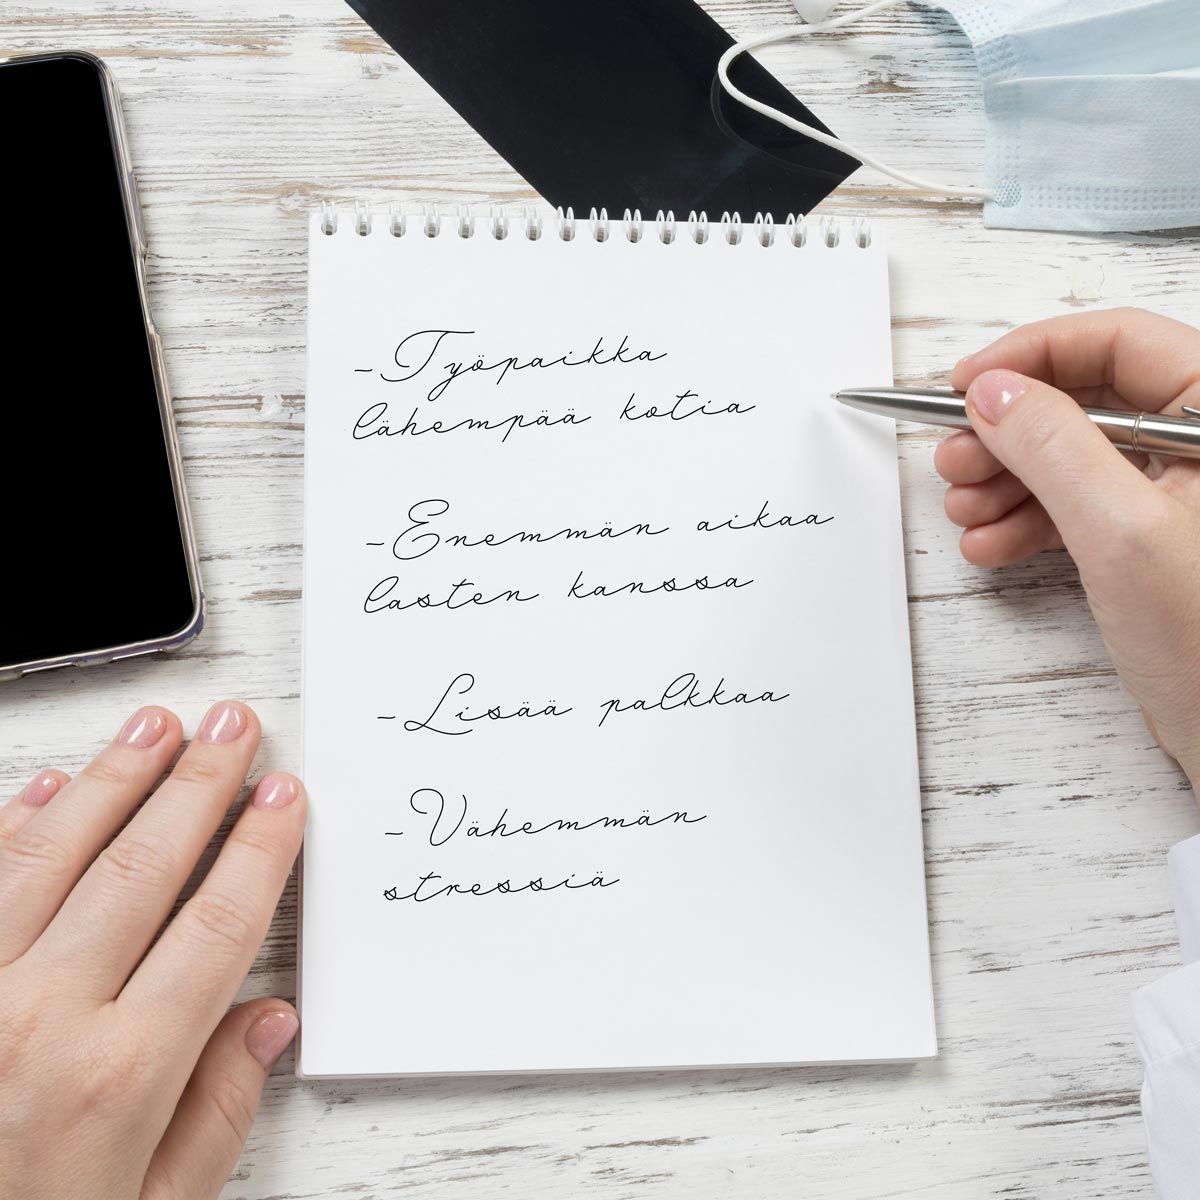 -Työpaikka
lähempää kotia
-Enemmän aikaa
lasten kanssa
-Lisää palkkaa
-Vähemmän
stressiä